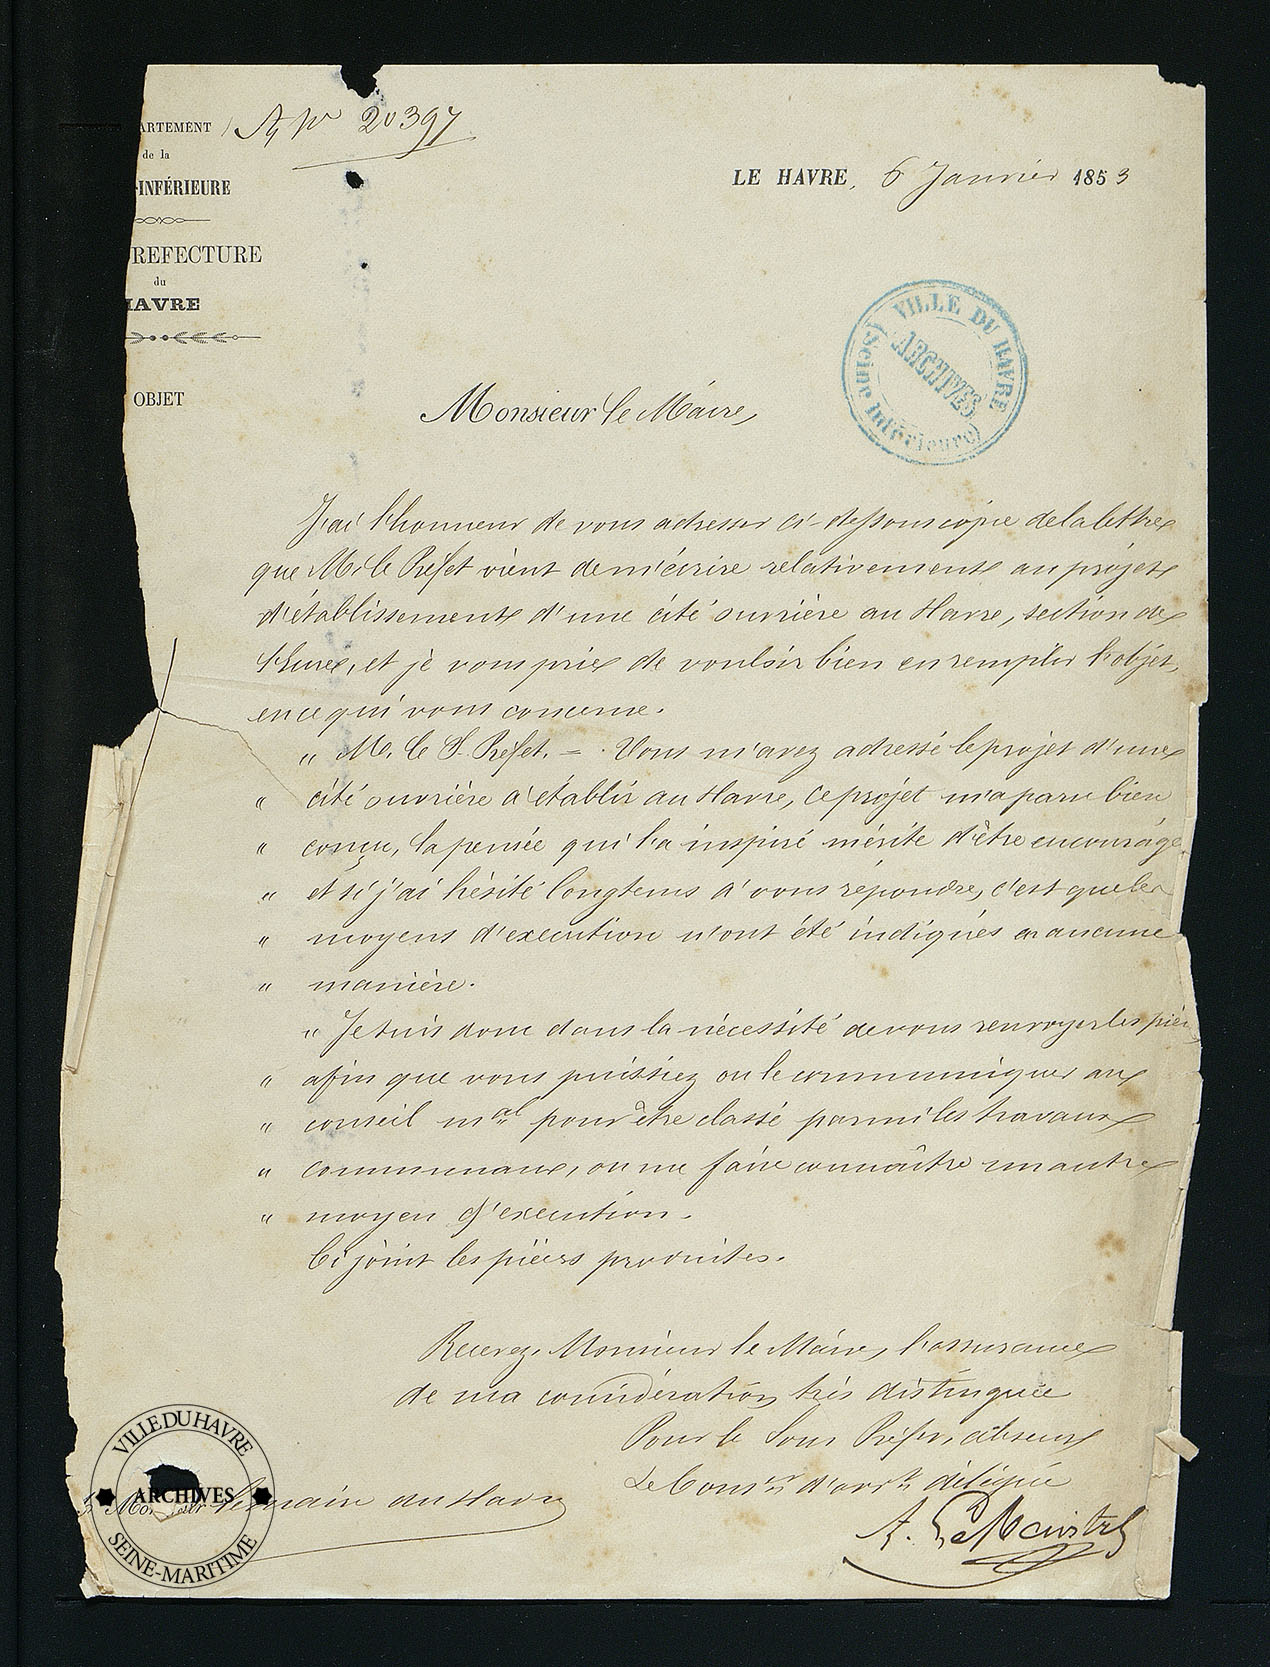 ARTEMENT
de la
-INFÉRIEURE
REFECTURE
du
HAVRE
OBJET
No 20397
LE HAVRE, 6 Janvier 1853
VILLE DU HAVRE
ARCHIVES
(Seine Inférieure)
Monsieur le Maire,
J'ai l'honneur de vous adresser ci-dessous copie de la lettre
que Mr. le Préfet vient de m'écrire relativement au projet
d'établissement d'une cité ouvrière au Havre, section de
l'Eure, et je vous prie de vouloir bien en remplir l'objet,
en ce qui vous concerne.
" Mr. le S. Préfet. = Vous m'avez adressé le projet d'une
" cité ouvrière à établir au Havre, ce projet m'a paru bien
" conçu, la pensée qui l'a inspiré mérite d'être encouragé
" et si j'ai hésité longtems à vous répondre, c'est que les
" moyens d'execution n'ont été indiqués en aucune
" manière.
" Je suis donc dans la nécessité de vous renvoyer les pièc
" afin que vous puissiez ou le communiquer au
" conseil mal pour être classé parmi les travaux
" communaux, ou me faire connaître un autre
" moyen d'execution.
Ci joint les pièces produites.
Recevez, Monsieur le Maire, l'assurance
de ma considération très distinguée
Pour le Sous Préfet, absent
Le Conser d'arrt délégué
A. Le Maistre
à Monsieur le maire du Havre
VILLE DU HAVRE
ARCHIVES
SEINE-MARITIME